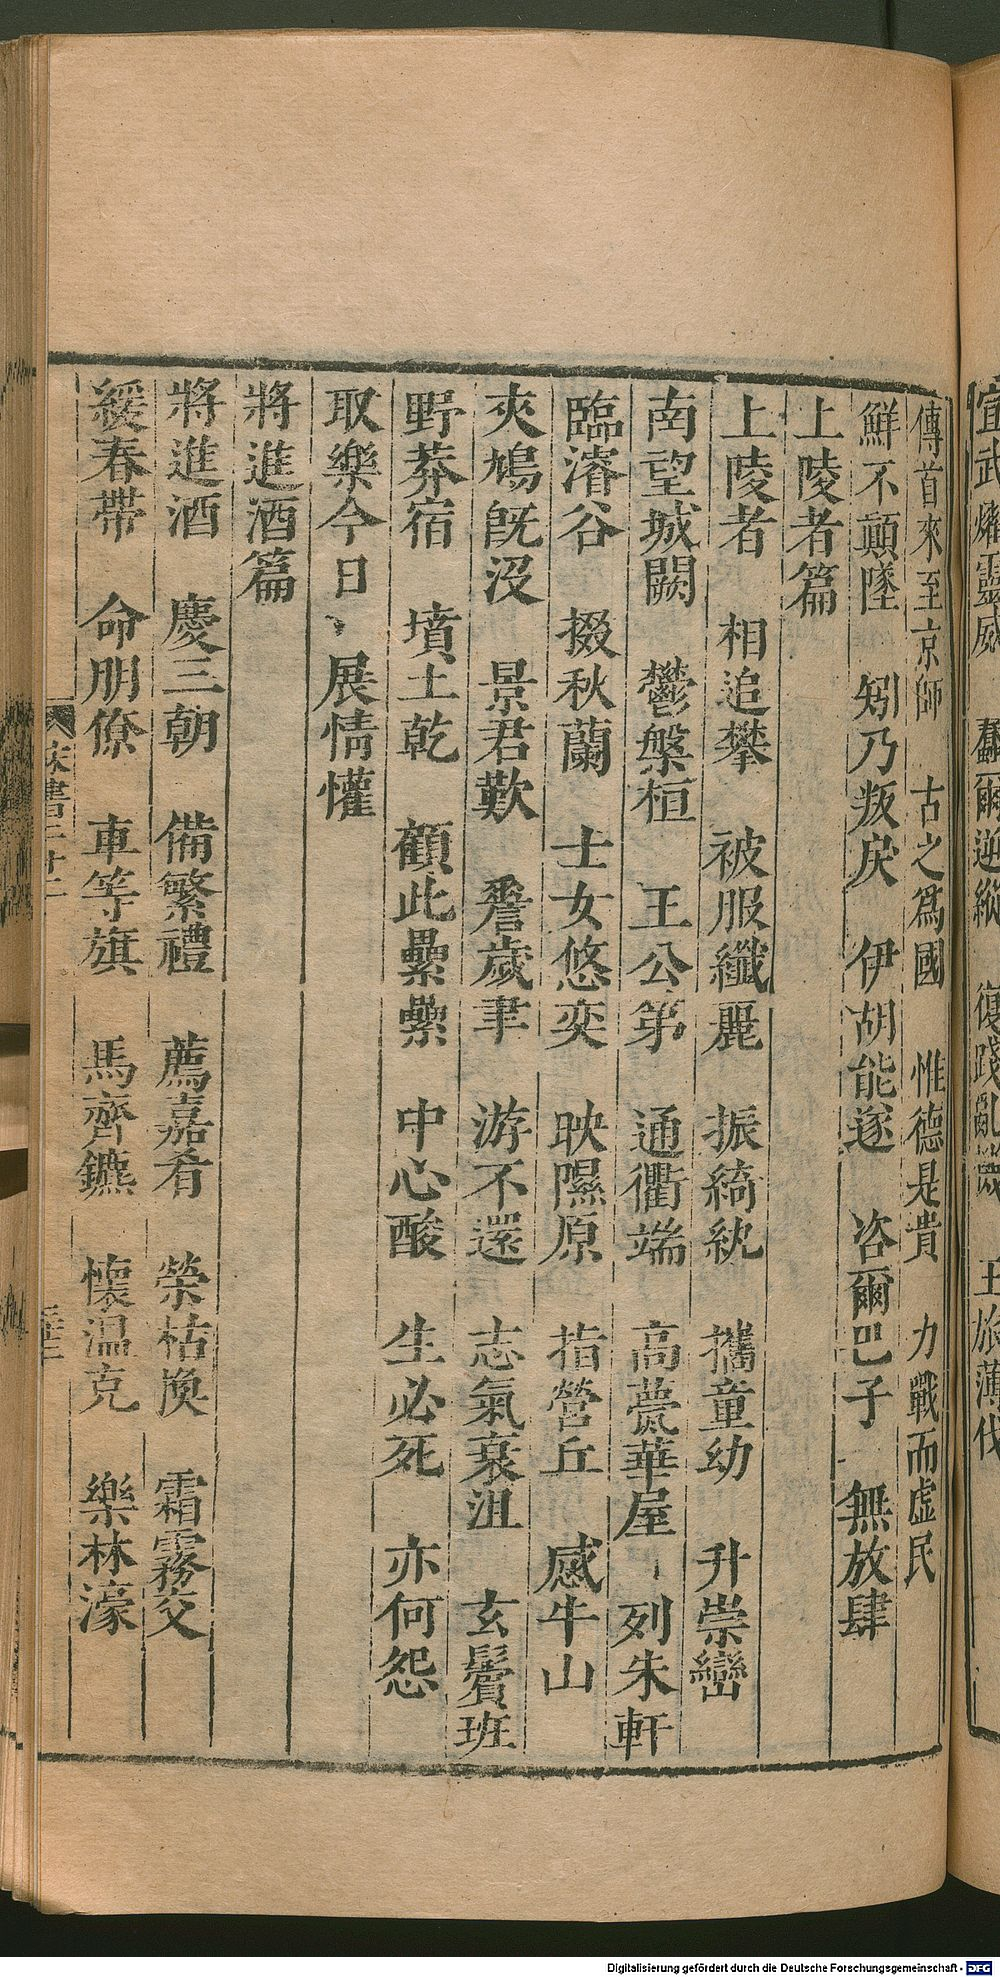 宜武燿靈威　蠢爾逆縱　復踐亂　王旅薄伐
傳首來至京師　古之爲國　惟德是貴　力戰而虛民
鮮不顚墜　矧乃叛戾　伊胡能遂　咨爾巴子　無放肆
上陵者篇
上陵者　相追攀　被服纖麗　振綺紈　攜童幼　升崇巒
南望城闕　鬱槃桓　王公第　通衢端　高甍華屋　列朱軒
臨濬谷　掇秋蘭　士女悠奕　映隰原　指營丘　感牛山
爽鳩旣沒　景君歎　嗟歲聿　游不還　志氣衰沮　玄鬢班
野莽宿　墳土乾　顧此纍纍　中心酸　生必死　亦何怨
取樂今日　展情懽
將進酒篇
將進酒　慶三朝　備繁禮　薦嘉肴　榮枯換　霜霧交
緩春帶　命朋僚　車等旗　馬齊鑣　懷温克　樂林濠
宋書二十二
Digitalisierung gefördert durch die Deutsche Forschungsgemeinschaft - DFG